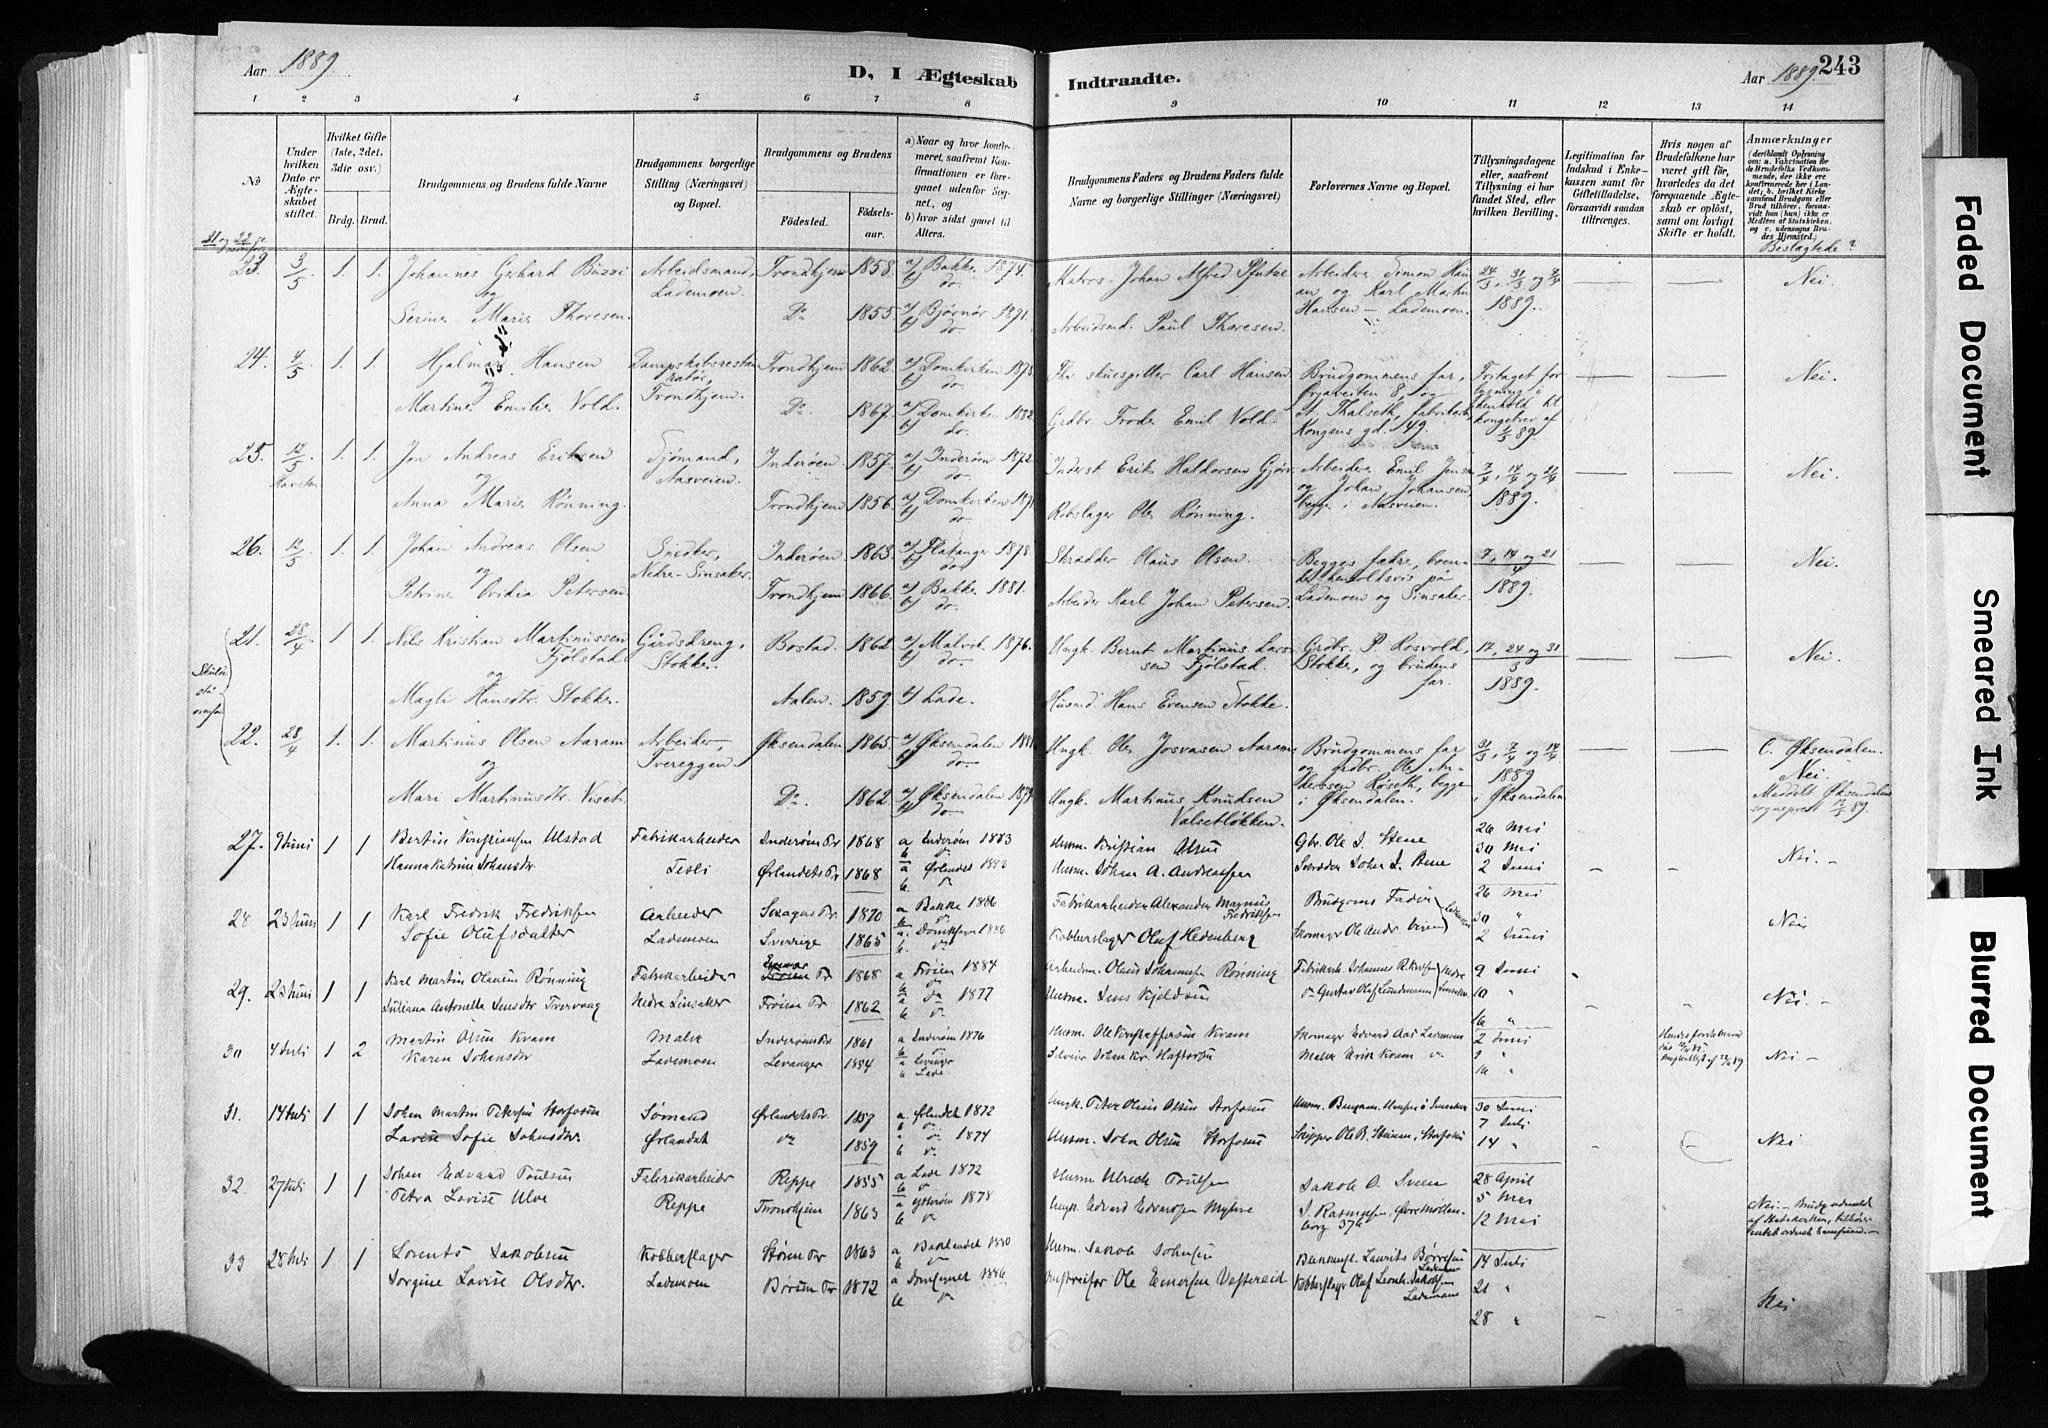 Aar 1889.
D, I Ægteskab Indtraadte.
Aar 1889. 243
1 2 3 4 5 6 7 8 9 10 11 12 13 14
No
Under hvilken Dato er Ægteskabet stiftet.
Hvilket Gifte (1ste, 2det, 3die osv.)
Brdg. Brud.
Brudgommens og Brudens fulde Navne
Brudgommens borgerlige Stilling (Næringsvei) og Bopæl.
Brudgommens og Brudens
Fødested.
Fødselsaar.
a) Naar og hvor konfirmeret, saafremt Konfirmationen er foregaaet udenfor Sognet, og
b) hvor sidst gaaet til Alters.
Brudgommens Faders og Brudens Faders fulde Navne og borgerlige Stillinger (Næringsvei)
Forlovernes Navne og Bopæl.
Tillysningsdagene eller, saafremt Tillysning ei har fundet Sted, efter hvilken Bevilling.
Legitimation for Indskud i Enkekassen samt for Giftetilladelse, forsaavidt saadan tiltrænges.
Hvis nogen af Brudefolkene har været gift før, hvorledes da det foregaaende Ægteskab er opløst, samt om lovligt Skifte er holdt.
Anmærkninger
(deriblandt Oplysning om: a. Vakcination for de Brudefolks Vedkommende, der ikke ere konfirmerede her i Landet; b. hvilket Kirkesamfund Brudgom eller Brud tilhører, forsaavidt han (hun) ikke er Medlem af Statskirken, og c. udensogns Brudes Hjemsted.)
Beslægtede?
21 og 22 se nedenfor
23. 3/5 1. 1. Johannes Gerhard Buzzi Arbeidsmand, Trondhjem 1858. a) Bakke 1874. Matros Johan Alfred Pfutze Arbeider Simon Hansen 24/3, 31/3 og 7/4 Nei.
og Lademoen. b) do. og Karl Martin 1889.
Serine Marie Thoresen. Do 1855. a) Bjørnør 1871. Arbeidsmd. Paul Thoresen. Hansen - Lademoen.
24. 4/5 1. 1. Hjalmar Hansen Dampskibsrestauratør, Trondhjem 1862. a) Domkirken 1878. Fhv skuespiller Carl Hansen Brudgommens far, Fritaget for Nei.
og Trondhjem. b) do. Ørjaveiten 8, og lysning i henhold til
Martine Emilie Vold. Do. 1867. a) Domkirken 1882. Grdbr Frode Emil Vold. St. Thalseth, fabrikeier, kongebrev af
b) do. Kongens gd. 49. 1/5 89.
25. 12/5 1. 1. Jon Andreas Eriksen Sjømand, Inderøen. 1857. a) Inderøen 1872. Inderst Erik Haldorsen Gjørv. Arbeidere Emil Jensen 7/4, 14/4 og 21/4 Nei.
Havstein og Aasveien. b) do. og Johan Johansen, 1889.
Anna Marie Rønning. Trondhjem 1856. a) Domkirken 1871. Rebslager Ole Rønning. begge i Aasveien.
26. 12/5 1. 1. Johan Andreas Olsen Snedker, Inderøen 1863. a) Flatanger 1878. Skrædder Olaus Olsen. Begges fædre, boende 7, 14 og 21/4 Nei.
og Nedre-Sinsaker. b) do. henholdsvis på 1889.
Petrine Ovidia Petersen. Trondhjem 1866. a) Bakke 1881. Arbeider Karl Johan Petersen. Lademoen og Sinsaker.
b) do.
Skulde stå ovenfor
21. 28/4 1. 1. Nils Kristian Martinussen Gårdsdreng, Bostad. 1862 a) Malvik 1876. Ungk. Bernt Martinus Larssen Grdbr. P. Rosvold, 17, 24 og 31/3 Nei.
Fjølstad Stokke. b) do. Fjølstad. Stokke, og brudens far. 1889.
og
Magli Hansdtr. Stokke. Aalen. 1859. a) Lade. Husmd Hans Evensen Stokke.
22. 28/4 1. 1. Martinus Olsen Aaram Arbeider, Øksendalen 1865. a) Øksendalen 1881. Ungk. Ole Josvasen Aaram Brudgommens far 31/3, 7/4 og 14/4 C. Øksendalen.
og Svereggen. b) do. og grdbr. Ole Andersen Røseth, begge 1889 Nei.
Mari Martinusdtr. Viset. Do. 1862. a) Øksendalen 1879. Ungk. Martinus Knudsen i Øksendalen. i Øksendalen Meddelt Øksendalens
b) do. Valsetløkken. sogneprest 13/5 89.
27. 9 Juni 1 1 Bertin Kristiansen Ulstad Fabrikarbeider Inderøen Pr 1868 a Inderøen 1883 Husm. Kristian Olsen Gbr. Ole J. Stene 26 Mai Nei. -
Hanna Katrine Johansdtr Tesli Ørlandets Pr. 1868 a Ørlandet 1882 Husm. Johan A. Andreassen Skrædder Johan J. Stene 30 Mai
2 Juni
28 23 Juni 1 1 Karl Fredrik Fredriksen Arbeider 1870 a Bakke 1886 Fabrikarbeider Alexander Magnus Fredriksen Brudgoms Fader 26 Mai Nei
Sofie Olufsdatter Lademoen Sverrige 1865 a. Domkirken 1886 Kobberslager Oluf Hedenberg Skomager Ole Andr. Viren Lademoen 30 "
2 Juni
29. 23 Juni 1 1 Karl Martin Olausen Rønning Fabrikarbeider Frøien Pr 1868 a Frøien 1884 Arbeidsm. Olaus Johannesen Rønning Fabrikarb. Johannes R. 9 Juni Nei. -
Juliana Antonette Jensdtr Tvervaag Nedre Sinsaker Frøien Pr 1862 a do 1877 Husm. Jens Kjeldsen do Gustav Oluf Lundemann 10 "
16 "
30 4 Juli 1 2 Martin Olsen Kvam Maler Inderøens Pr 1861 a Inderøen 1876 Husm. Ole Kristoffersen Kvam Skomager Edvard Aas Lademoen 2 Juni Nei -
Karen Johansdtr Lademoen Levanger 1854 a Levanger Johan Kr. Haftorsen Maler Kvam do 9 "
b Lade 16 "
31. 14 Juli 1 1 Johan Martin Petersen Storfosen Sømand Ørlandets Pr. 1857 a Ørlandet 1872 Ungk. Peter Olaus Olsen Storfosen 30 Juni Nei
Lavise Sofie Johnsdtr. Ørlandet do 1859 a do 1874 Husm. John Olsen Storfosen Skipper Ole B. Storfosen 7 Juli
14 "
32. 27 Juli 1 1 Johan Edvard Poulsen Fabrikarbeider Reppe 1855 a Lade 1872 Husm Ulrich Poulsen Jakob O. Sveen 28 April
Petra Lovise Ulve Reppe Trondhjem 1863 a Ytterøen 1878 Ungk. Edvard Myhre J. Rasmussen, Øvre Møllenborg 37b 5 Mai Nei. - Brudg udmeldt
12 Mai af Statskirken, tilhører intet ordnet Samfund. -
33 28 Juli 1 1 Lorents Jakobsen Kobberslager Støren Pr 1863 a Baklandet 1880 Husm. Jakob Johnsen Laurits Børresen Lademoen 14 Juli Nei
Jorgine Lovise Olsdtr. Lademoen Børsen Pr 1872 a Domsognet 1886 Ole Kobberslager Oluf Jakobsen Lademoen 21 "
28 "
Faded Document
Smeared Ink
Blurred Document